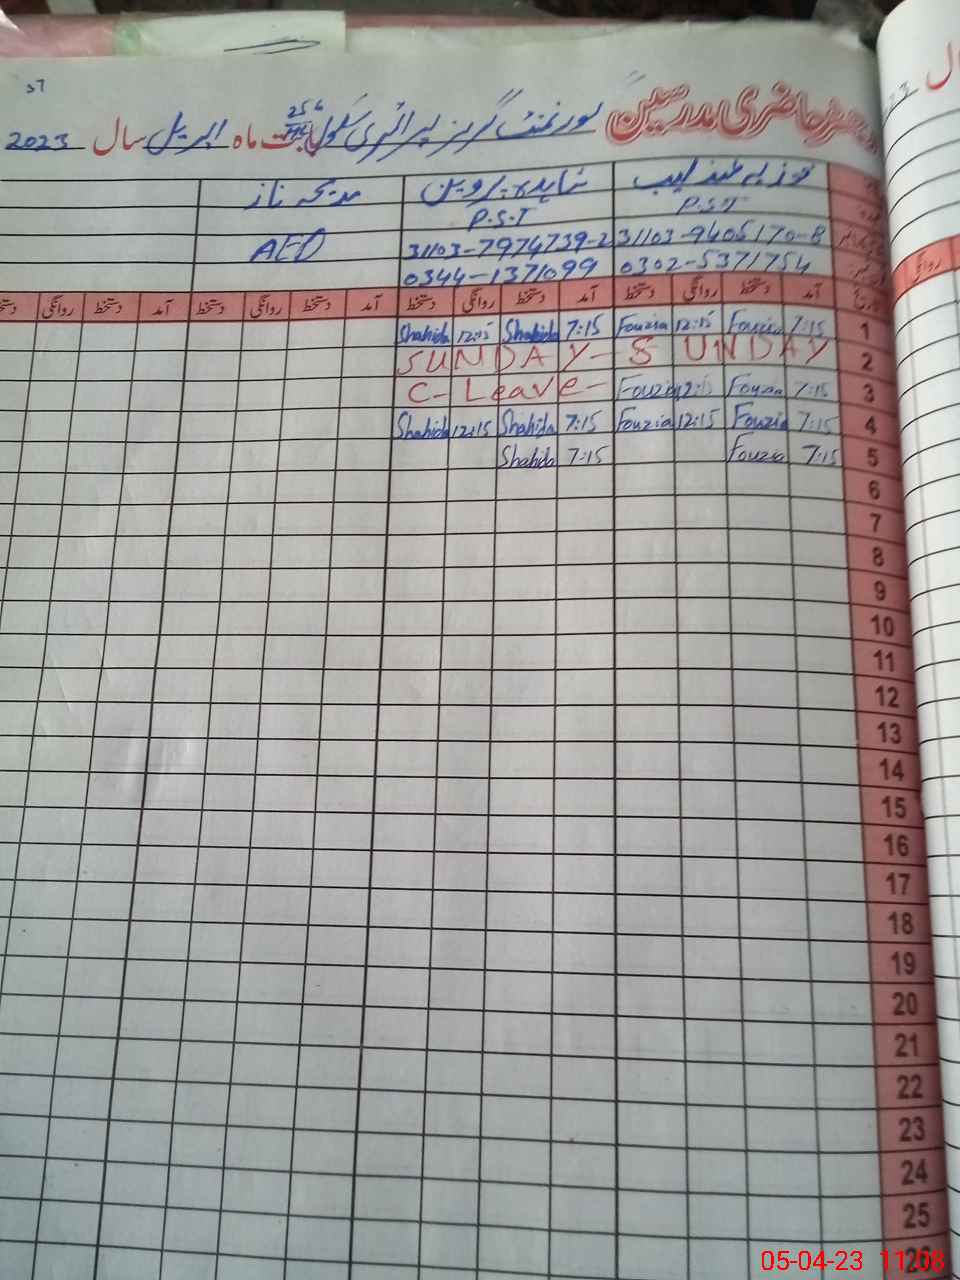 37
رجسٹر حاضری مدرسین گورنمنٹ گرلز پرائمری سکول 25 بابت ماہ اپریل سال 2023
فوزیہ عندلیب شاہدہ پروین مدیحہ ناز
P.S.T P.S.T
31103-9405170-8 31103-7974739-2 AEO
0302-5371754 0344-1371099
آمد دستخط روانگی دستخط آمد دستخط روانگی دستخط آمد دستخط روانگی دستخط آمد دستخط روانگی
روانگی
Shahida 12:15 Shahida 7:15 Fouzia 12:15 Fouzia 7:15 1
SUNDAY - SUNDAY 2
C-Leave- Fouzia Fouzia 7:15 3
Shahida 12:15 Shahida 7:15 Fouzia 12:15 Fouzia 7:15 4
Shahida 7:15 Fouzia 7:15 5
6
7
8
9
10
11
12
13
14
15
16
17
18
19
20
21
22
23
24
25
26
05-04-23 11:08